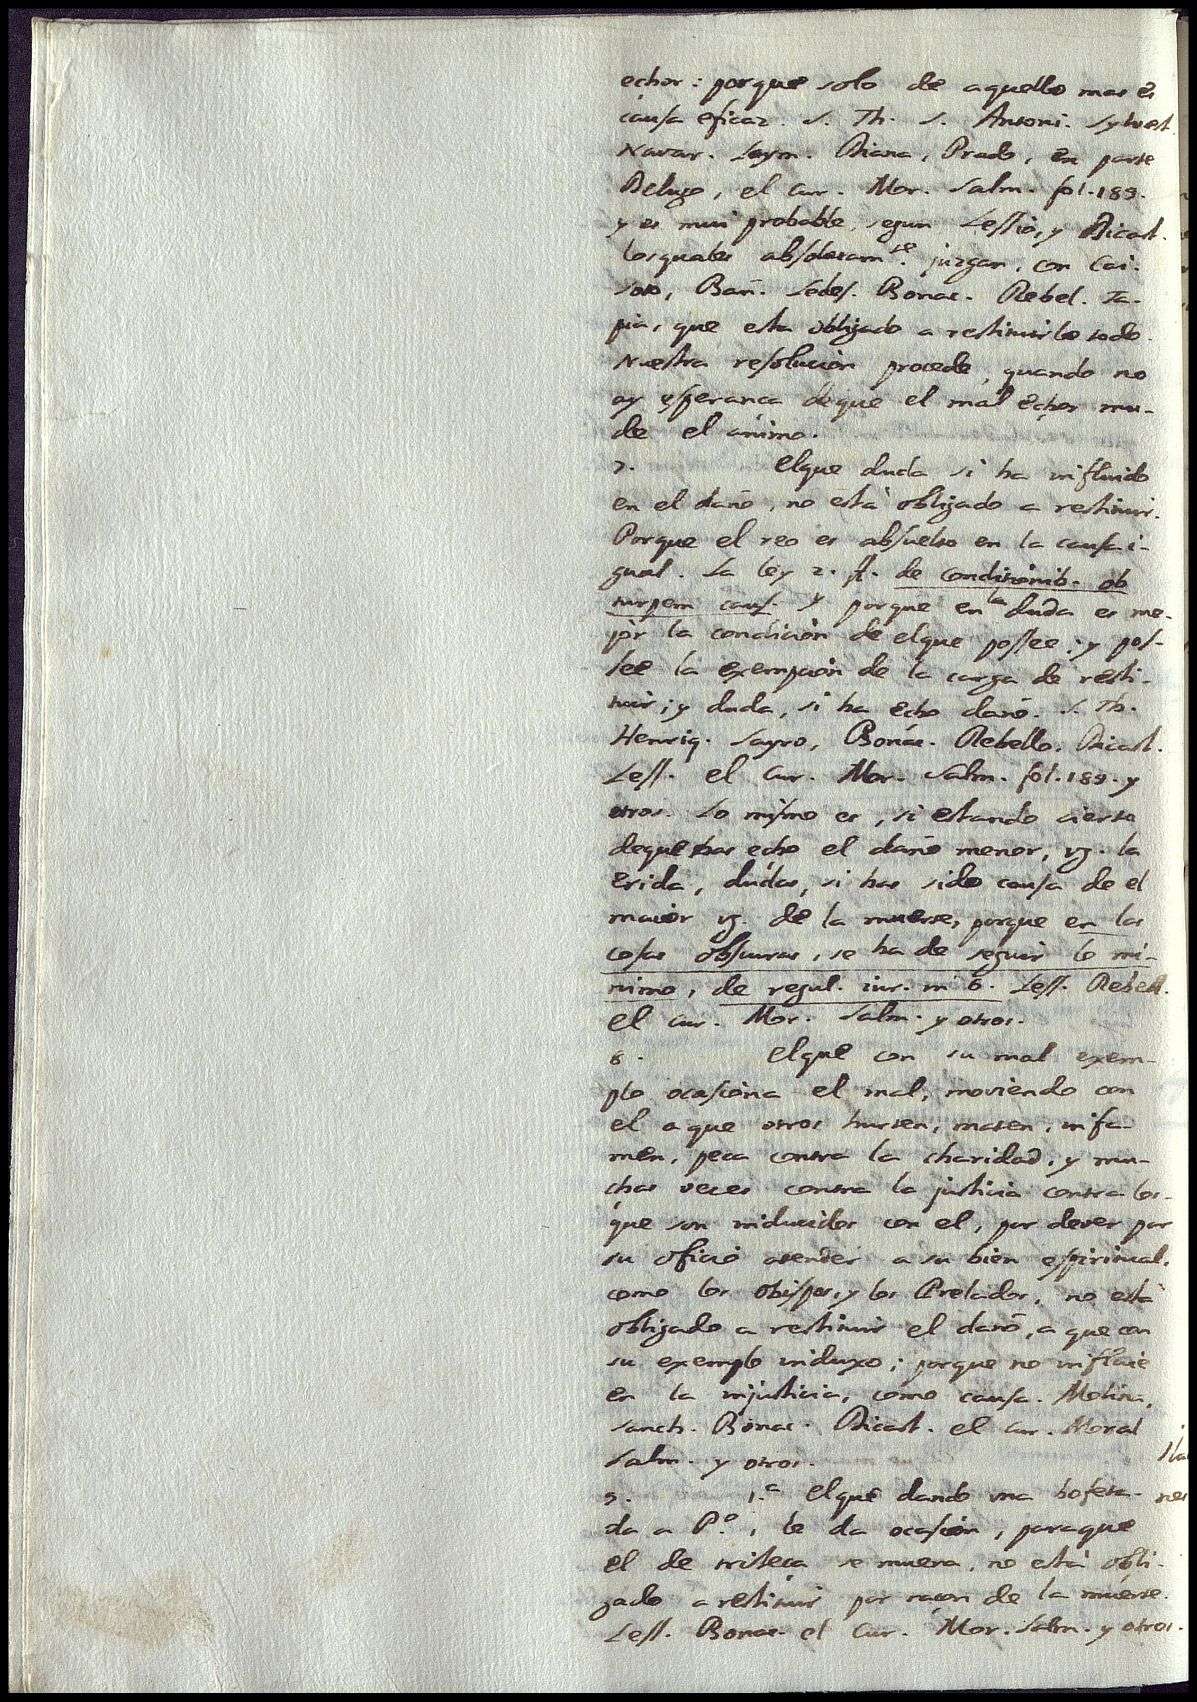 echor: porque solo de aquello mas es
causa eficaz. S. Th. S. Antoni. Sylvest.
Navar. Laym. Diana, Prado, en parte
Delugo, el Cur. Mor. Salm. fol. 189.
y es mui probable, segun Lessio, y Dicast.
losquales absolutam.te juzgan, con Cai.
Soto, Bañ. Ledes. Bonac. Rebel. Ta-
pia, que esta obligado a restituirlo todo.
Nuestra resolucion procede, quando no
ay esperanca deque el mal echor mu-
de el animo.
7. Elque duda si ha influido
en el daño, no está obligado a restituir.
Porque el reo es absuelto en la causa i-
gual. La ley 2. ff. de conditionib. ob
turpem caus. y porque en la duda es me-
jor la condicion de elque possee; y pos-
see la exempcion de la carga de resti-
tuir; y duda, si ha echo daño. S. Th.
Henriq. Sayro, Bonac. Rebello. Dicast.
Less. el Cur. Mor. Salm. fol. 189. y
otros. Lo mismo es, si estando cierto
deque has echo el daño menor, vg. la
erida, dudas, si has sido causa de el
maior vg. de la muerte, porque en las
cosas obscuras, se ha de seguir lo mi-
nimo, de regul. iur. in 6. Less. Rebell.
el Cur. Mor. Salm. y otros.
8. Elque con su mal exem-
plo ocasiona el mal, moviendo con
el a que otros hurten, maten, infa-
men, peca contra la charidad, y mu-
chas veces contra la justicia contra los-
que son inducidos con el, por dever por
su oficio atender a su bien espiritual,
como los Obispos, y los Prelados, no está
obligado a restituir el daño, a que con
su exemplo induxo; porque no influie
en la injusticia, como causa. Molina,
Sanch. Bonac. Dicast. el Cur. Moral
Salm. y otros.
9. 1.a Elque dando una bofeta-
da a P.o, le da ocasion, paraque
el de tristeça se muera, no está obli-
gado a restituir por raçon de la muerte.
Less. Bonac. el Cur. Mor. Salm. y otros.